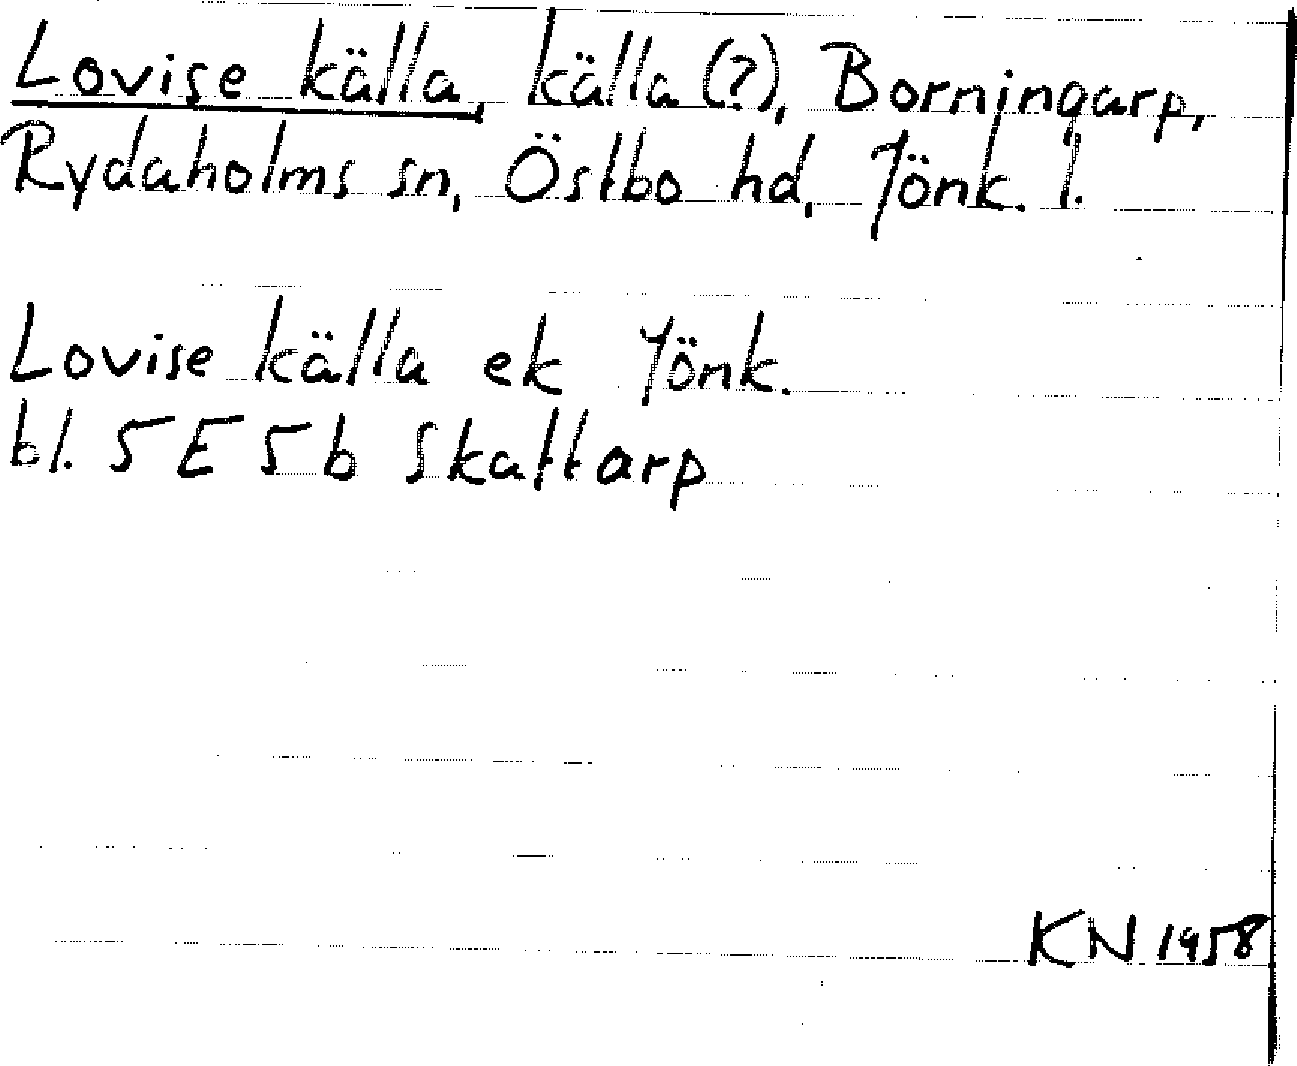 Lovise källa, källa (?), Borningarp,
Rydaholms sn, Östbo hd, Jönk. l.
Lovise källa ek Jönk.
bl. 5E5b Skattarp
KN 1958